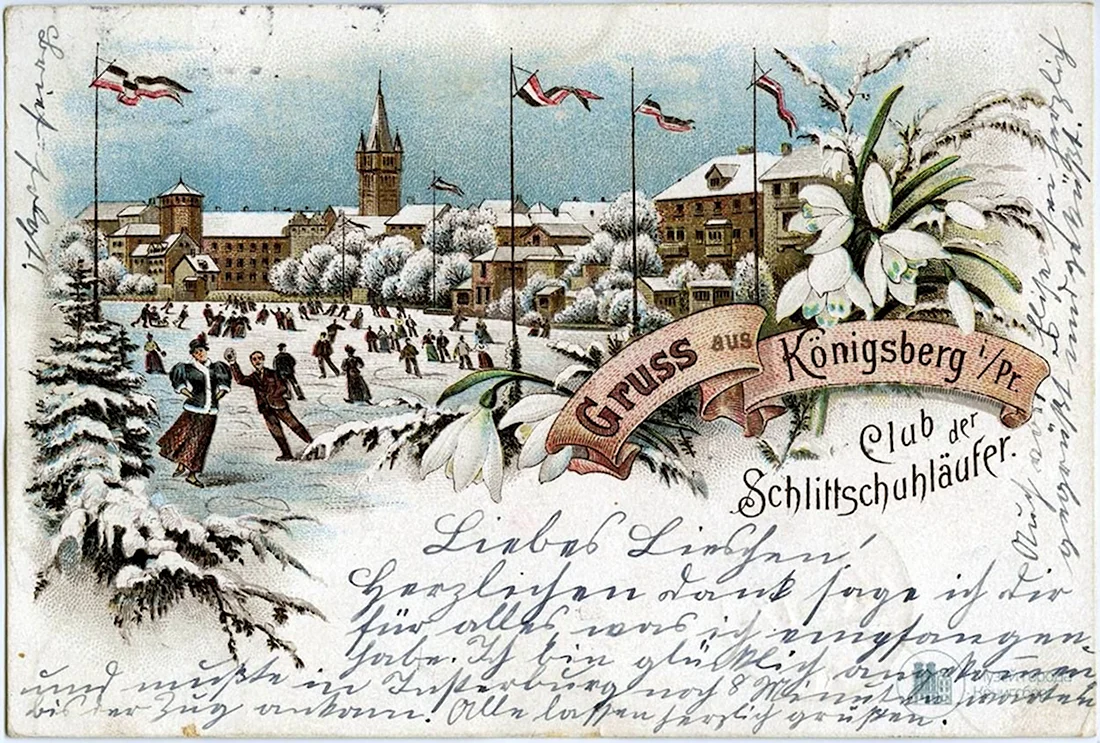 Gruss aus Königsberg i/Pr.
Club der
Schlittschuhläufer.
Liebes Lieschen!
Herzlichen Dank sage ich dir
für alles was ich empfangen
habe. Ich bin glücklich angekommen
und mußte in Insterburg noch 8 Minuten warten
bis der Zug ankam. Alle lassen herzlich grüßen.
Auch
Brief folgt.